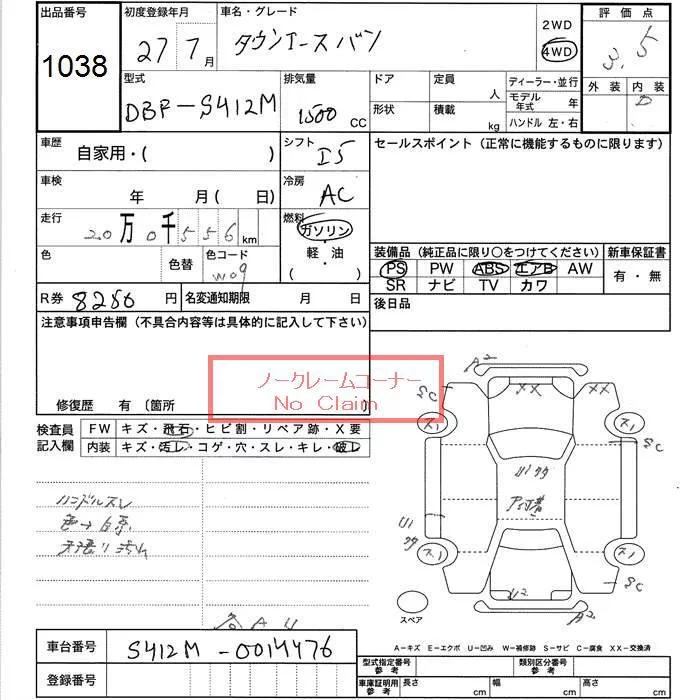 出品番号 1038
初度登録年月 27 7月
車名・グレード タウンエースバン
2WD
4WD
評価点 3.5
外装 内装 D
型式 DBF-S412M
排気量 1500 CC
ドア
定員 人
ディーラー・並行
モデル年式 年
形状
積載 kg
ハンドル 左・右
車歴 自家用・( )
シフト I5
セールスポイント (正常に機能するものに限ります)
車検 年 月( 日)
冷房 AC
走行 20万0千556km
燃料 ガソリン
軽・油
( )
色
色替
色コード W09
装備品 (純正品に限り○をつけてください)
新車保証書
PS PW ABS エアB AW
有・無
SR ナビ TV カワ
R券 8250円
名変通知期限 月 日
後日品
注意事項申告欄 (不具合内容等は具体的に記入して下さい)
ノークレームコーナー
No Claim
修復歴 有 〔箇所 〕
検査員記入欄
FW キズ・飛石・ヒビ割・リペア跡・X要
内装 キズ・汚レ・コゲ・穴・スレ・キレ・破レ
ハンドルスレ
色→白系
天張り汚れ
A2
SC
XX
XX
ス1
ス1
SC
U1 ワタ
U1
ワタ
ス1
ス1
U2
SC
A2
スペア
A U
A-キズ E-エクボ U-凹み W-補修跡 S-サビ C-腐食 XX-交換済
車台番号 S412M-0014476
登録番号
型式指定番号 参考
類別区分番号 参考
車庫証明用 参考
長さ cm
幅 cm
高さ cm